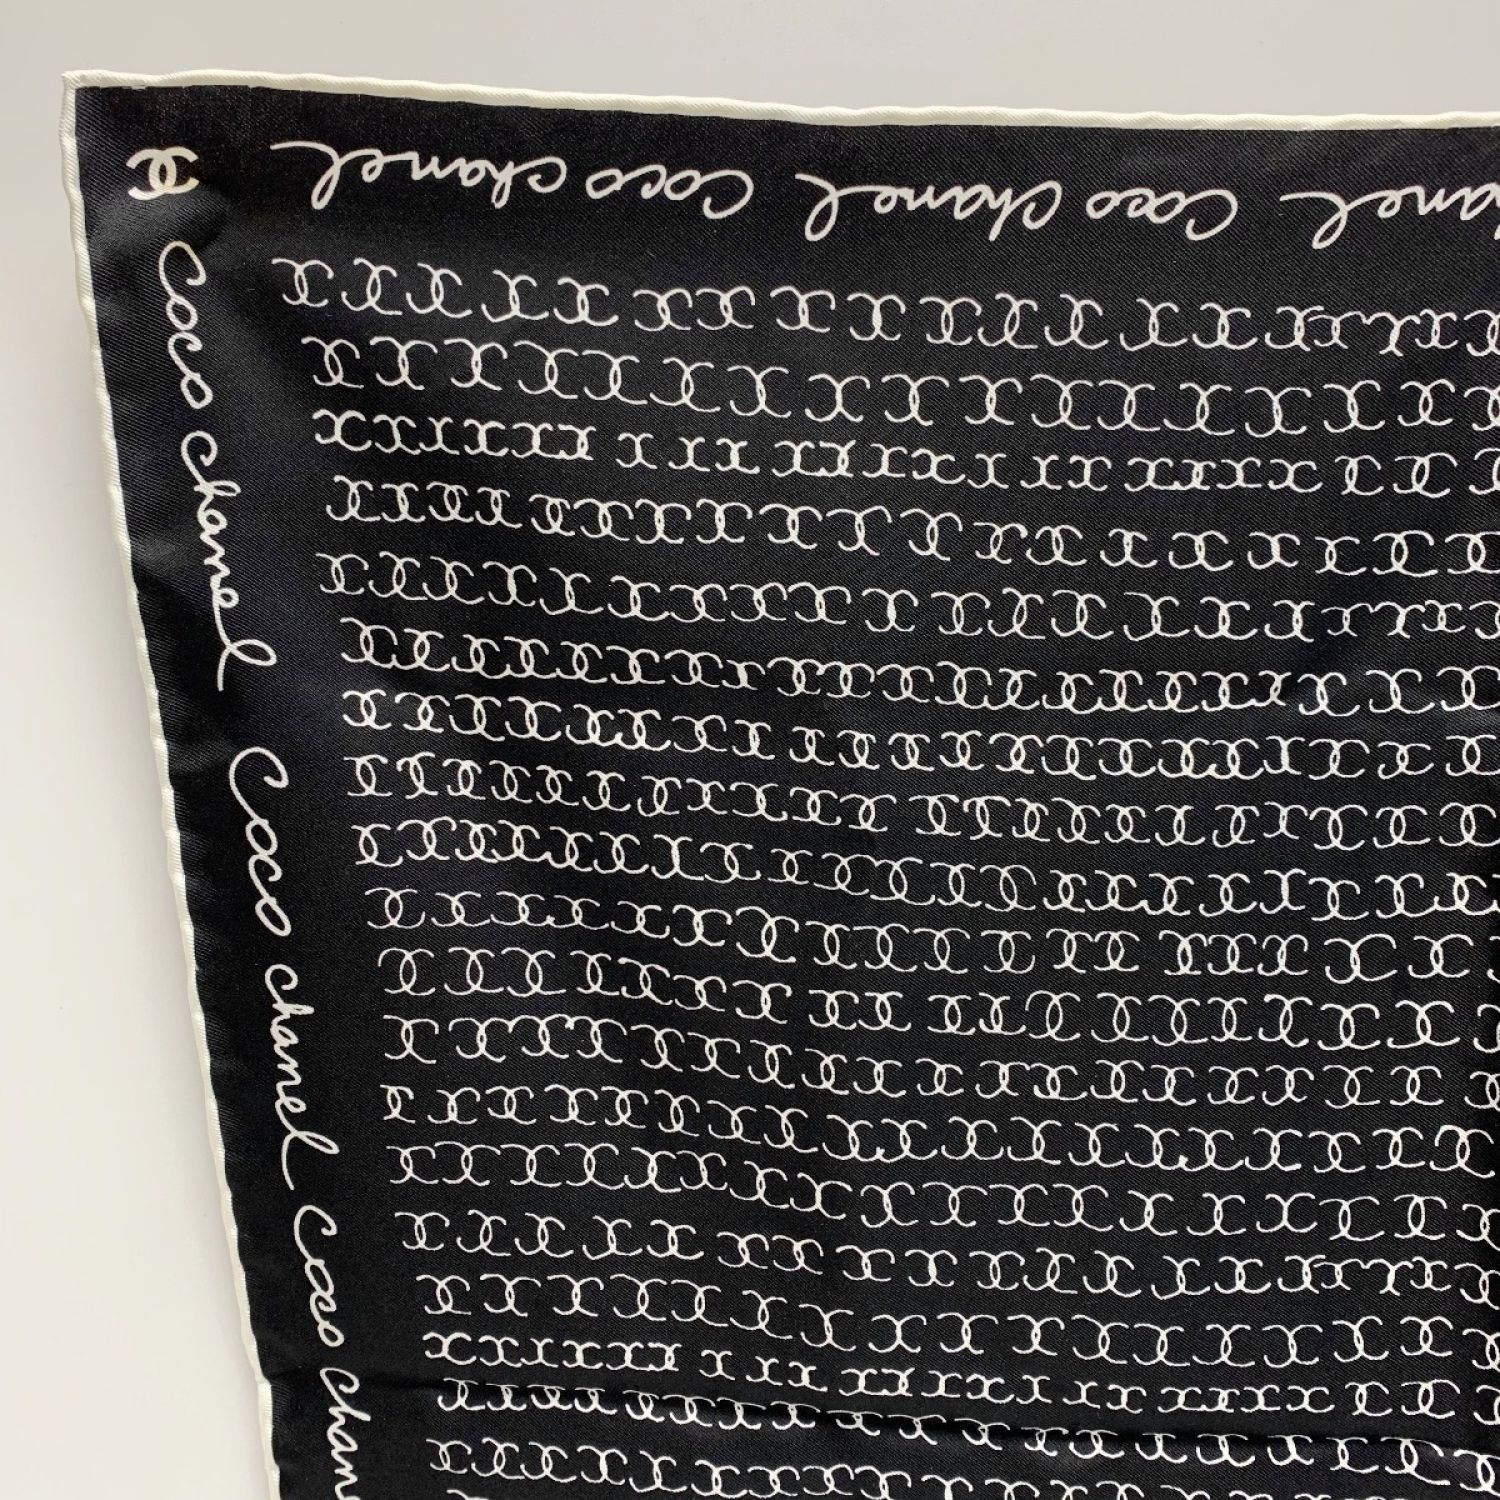 Coco Chanel Coco Chanel Chanel
Coco Chanel Coco Chanel Coco Chan